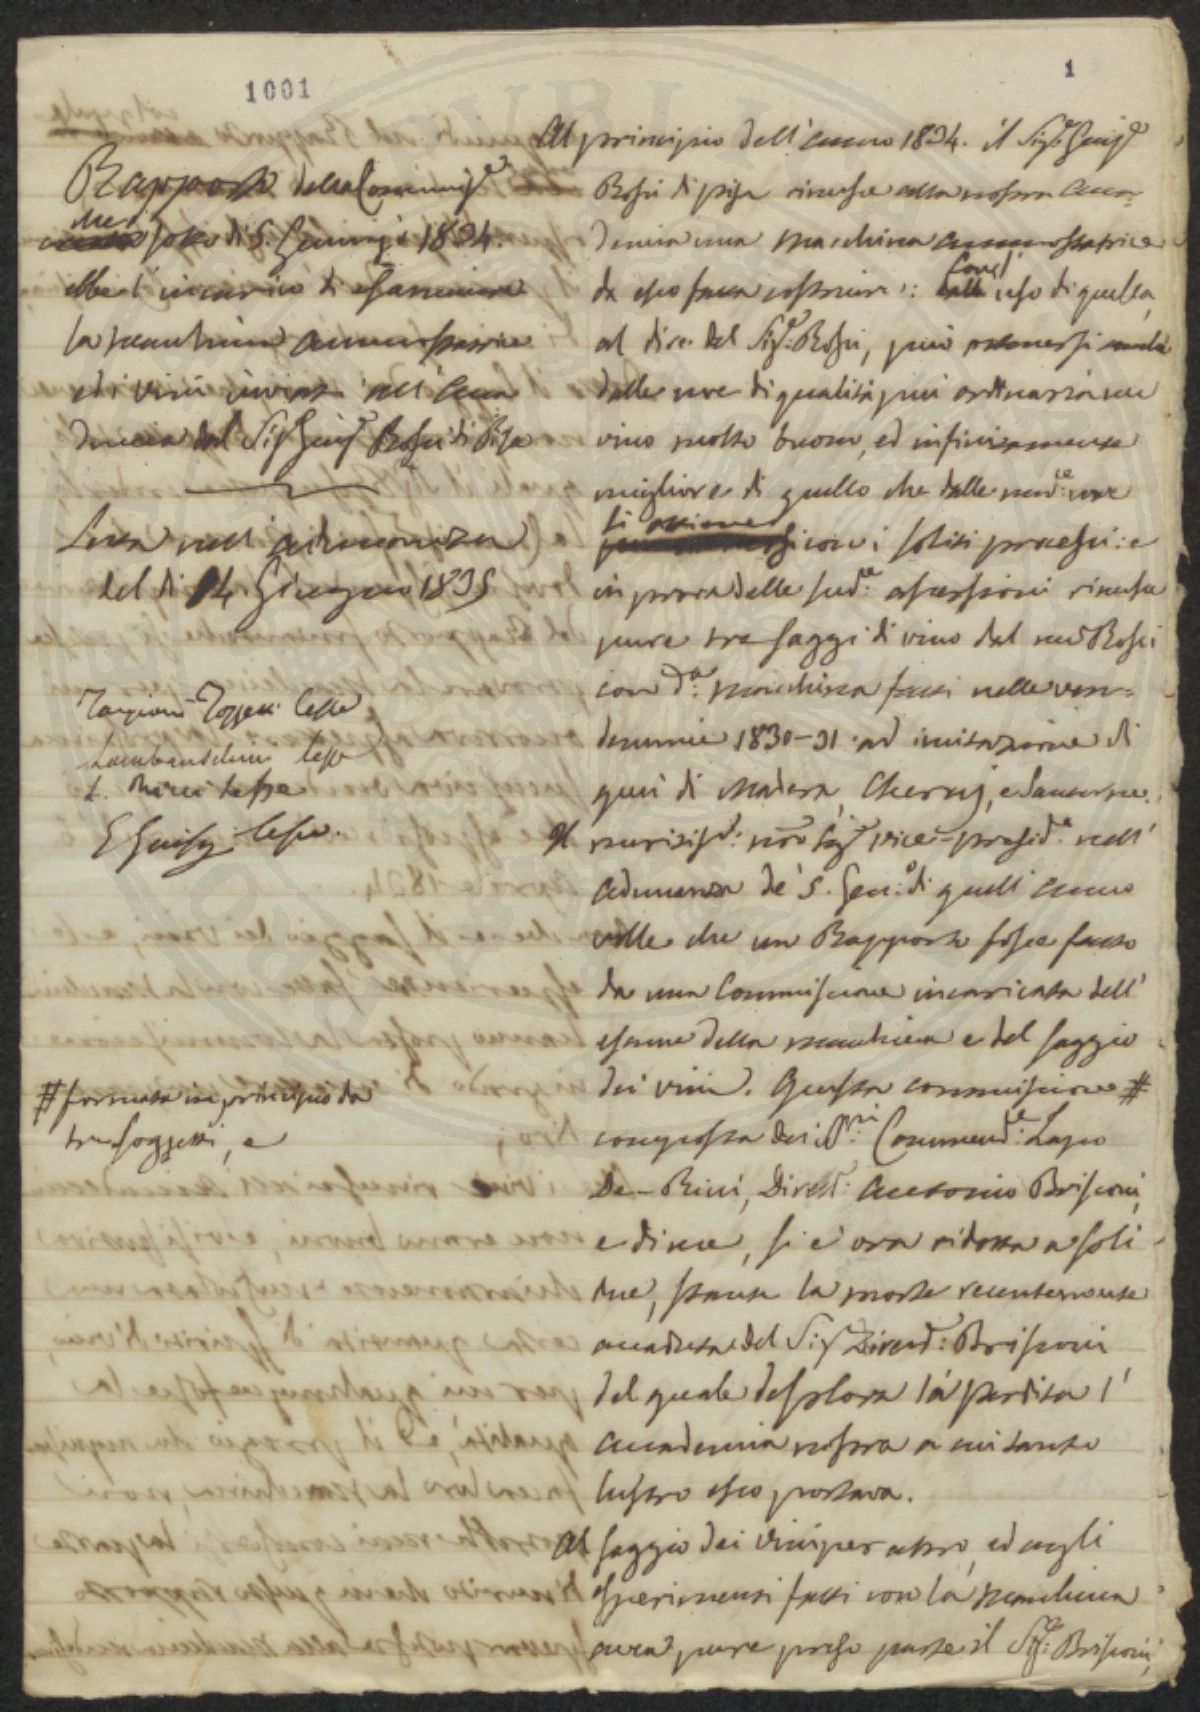 1001
1
Rapporto della Commiss.e
che sotto dì 5. Gennajo 1834.
ebbe l'incarico di esaminare
la macchina ammostatrice
ed i vini inviati all'Acca
demia dal Sig.r Giuse.e Rossi di Pisa
Letta nell'adunanza
del dì 14 Giugno 1835
Targioni-Tozzetti Cesse
Lambruschini Cesse
L. Ricci Cesse
Al principio dell'anno 1834. il Sig.r Giuse.e
Rossi di Pisa rimesse alla nostra Acca=
demia una macchina ammostatrice
da esso fatta costruire: Coll' uso di quella,
al dire del Sig.r Rossi, può ottenersi
dalle uve di qualità più ordinaria un
vino molto buono, ed infinitamente
migliore di quello che dalle med.e uve
si ottiene con i soliti processi: e
in prova delle sud.e asserzioni rimesse
pure tre saggi di vino dal med.o Rossi
con d.a macchina fatti nelle ven=
demmie 1830-31 ad imitazione di
quei di Madera, Cherry, e Sauterne.
Il nro Sig.r vice-presid.e nell'
adunanza de' 5. Gen.o di quell'anno
volle che un Rapporto fosse fatto
da una Commissione incaricata dell'
esame della macchina e del saggio
dei vini. Questa commissione #
# formata in principio da
tre soggetti, e
composta dei SS.ri Commend.e Lapo
De-Ricci, Dirett.e Antonio Brisconi,
e di me, si è ora ridotta a soli
due, stante la morte recentemente
accaduta del Sig.r Dirett.e Brisconi
del quale deplora la perdita l'
Accademia nostra a cui tanto
lustro esso portava.
Al saggio dei vini per altro, ed agli
esperimenti fatti con la macchina
avea pure preso parte il Sig.r Brisconi,